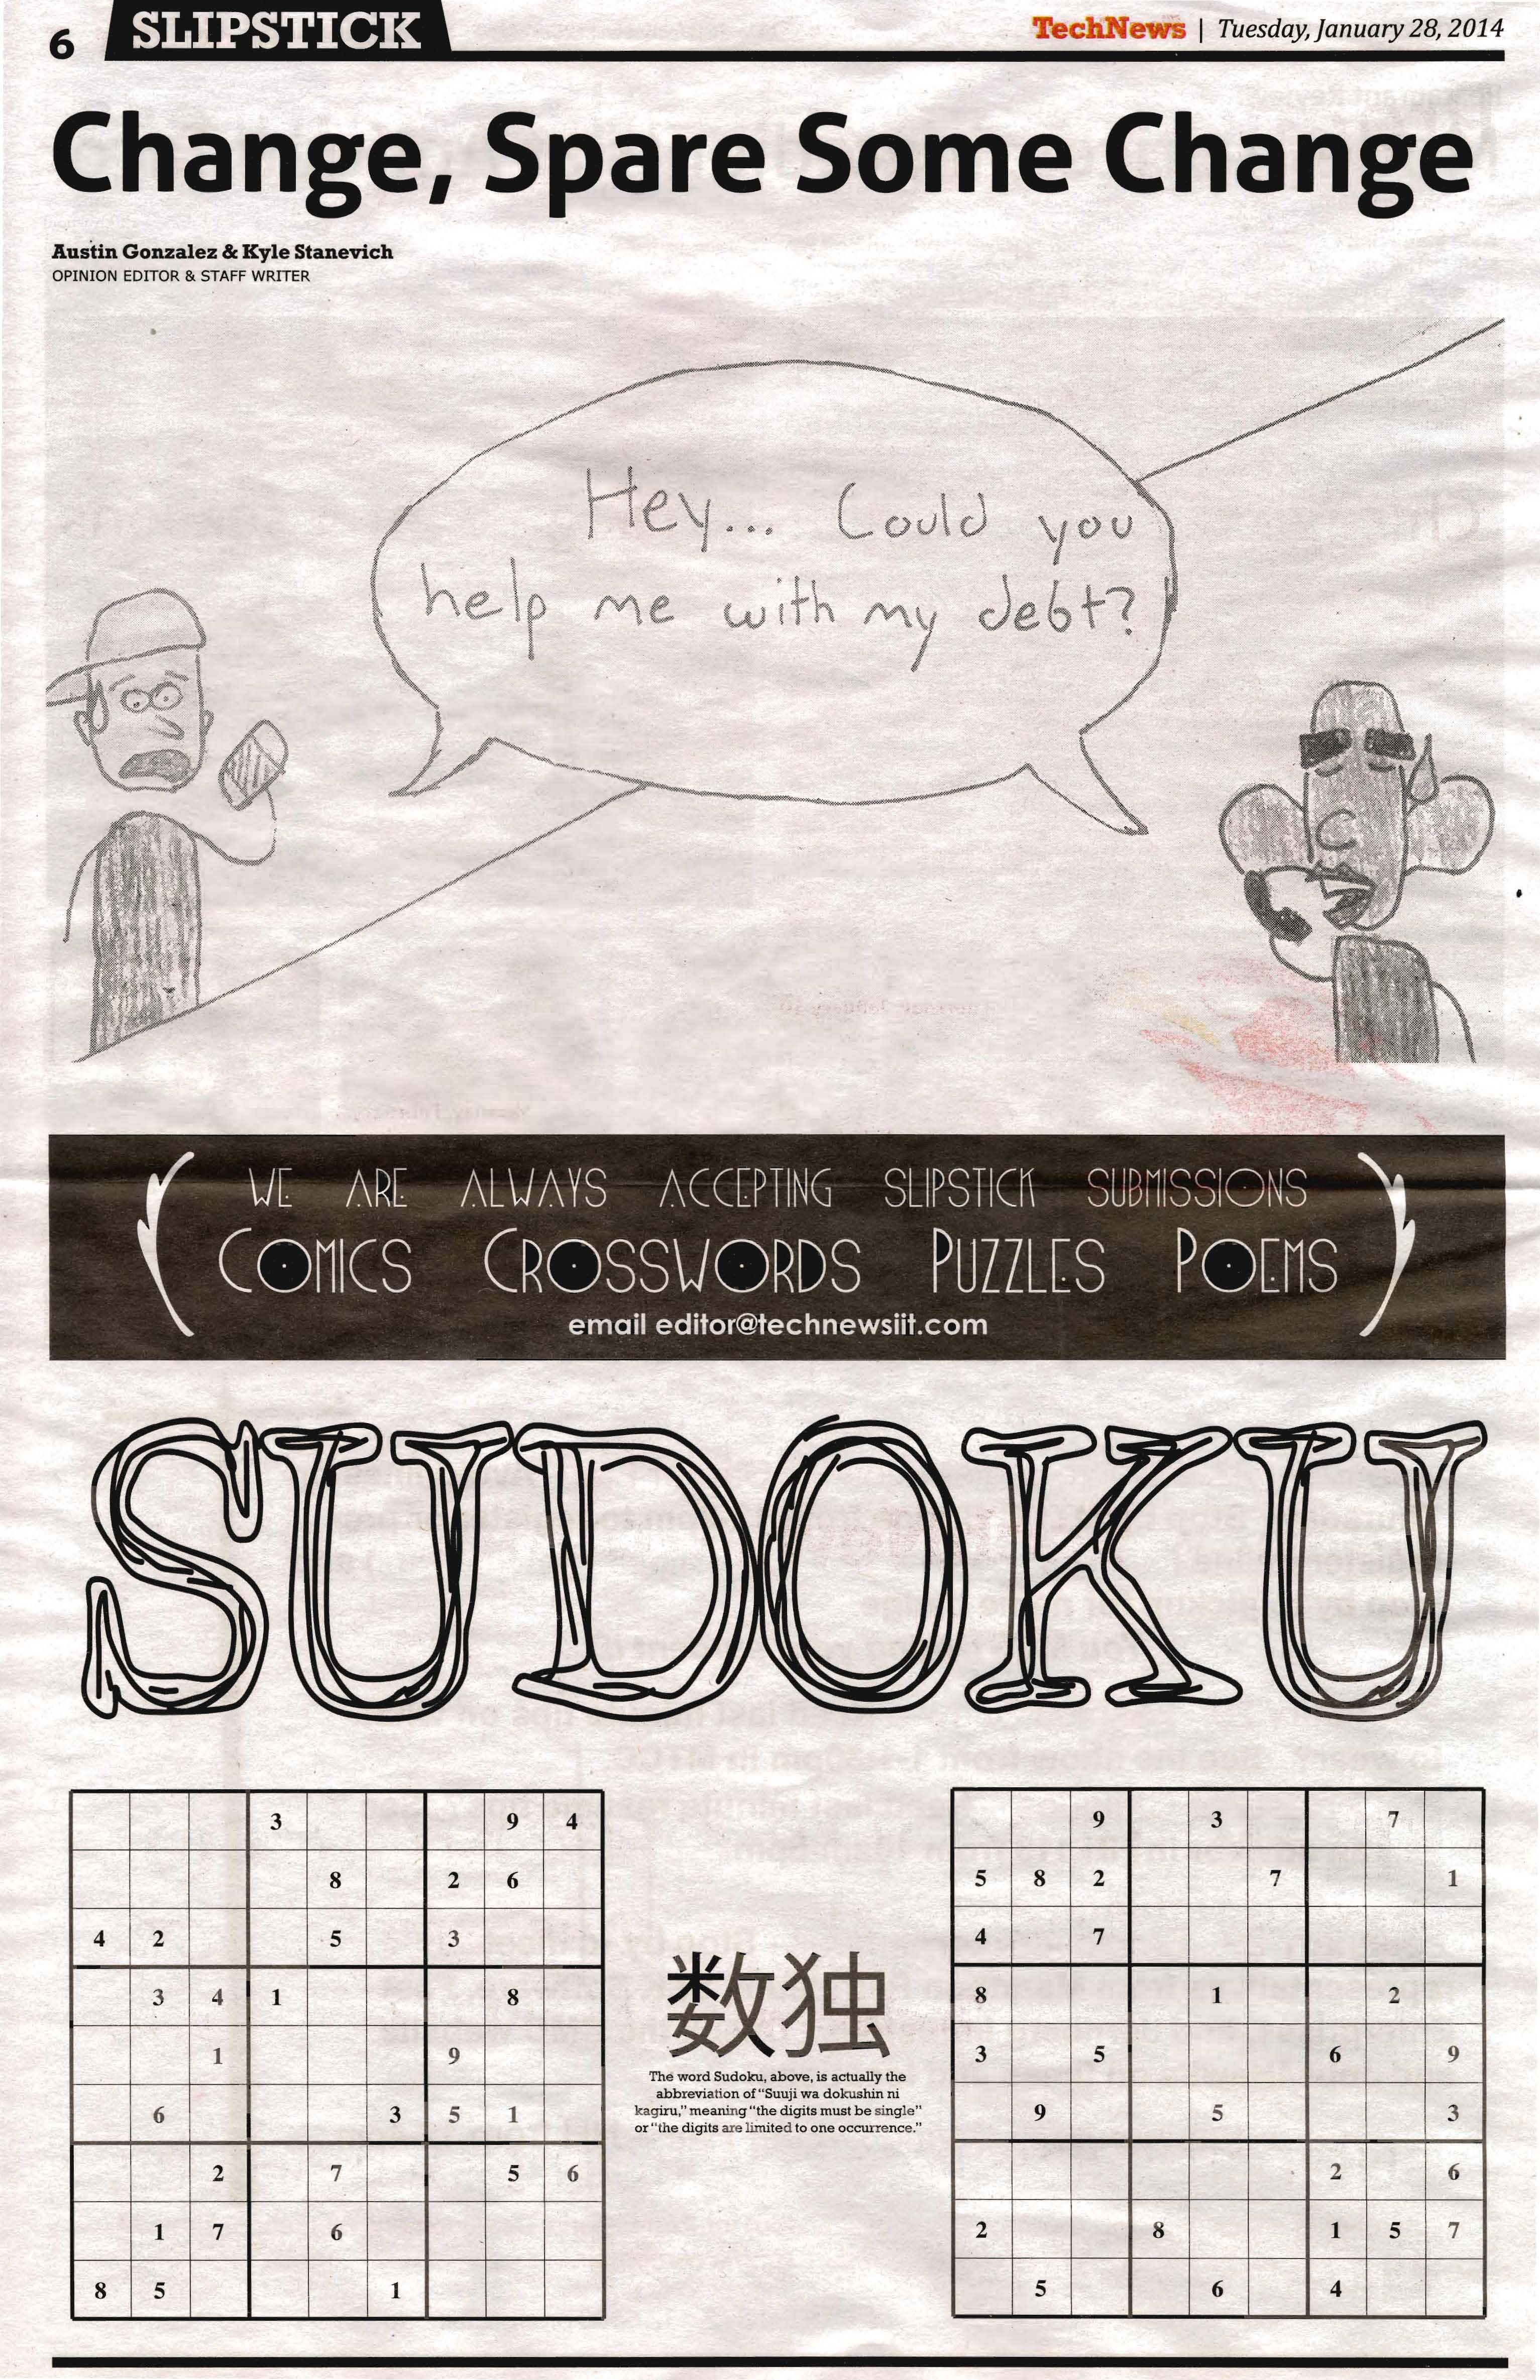 6 SLIPSTICK TechNews | Tuesday, January 28, 2014
Change, Spare Some Change
Austin Gonzalez & Kyle Stanevich
OPINION EDITOR & STAFF WRITER
Hey... Could you
help me with my debt?
WE ARE ALWAYS ACCEPTING SLIPSTICK SUBMISSIONS
COMICS CROSSWORDS PUZZLES POEMS
email editor@technewsiit.com
SUDOKU
3 9 4
8 2 6
4 2 5 3
3 4 1 8
1 9
6 3 5 1
2 7 5 6
1 7 6
8 5 1
数独
The word Sudoku, above, is actually the
abbreviation of "Suuji wa dokushin ni
kagiru," meaning "the digits must be single"
or "the digits are limited to one occurrence."
9 3 7
5 8 2 7 1
4 7
8 1 2
3 5 6 9
9 5 3
2 6
2 8 1 5 7
5 6 4